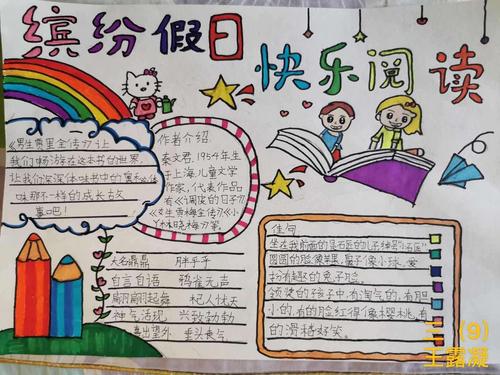 缤纷假日
快乐阅读
《男生贾里全传》让
我们畅游在这本书的世界,
让我们深深体味书中的
味那不一样的成长故
事吧!
作者介绍:
秦文君,1954年生
于上海,儿童文学
作家,代表作品
有《16周岁的日子》
《女生贾梅全传》《小
林晓梅》等。
大名鼎鼎 胖乎乎
自言自语 鸦雀无声
翩翩起舞 杞人忧天
神气活现 兴致勃勃
喜出望外 垂头丧气
佳句
坐在我前面的是石匠的儿子绰号“小石匠”
圆圆的脸像苹果,鼻子像小球,爱
扮有趣的兔子脸。
领奖的孩子中,有淘气的,有胆
小的,有的脸红得像樱桃,有
的滑稽好笑。
三(9)
王露凝